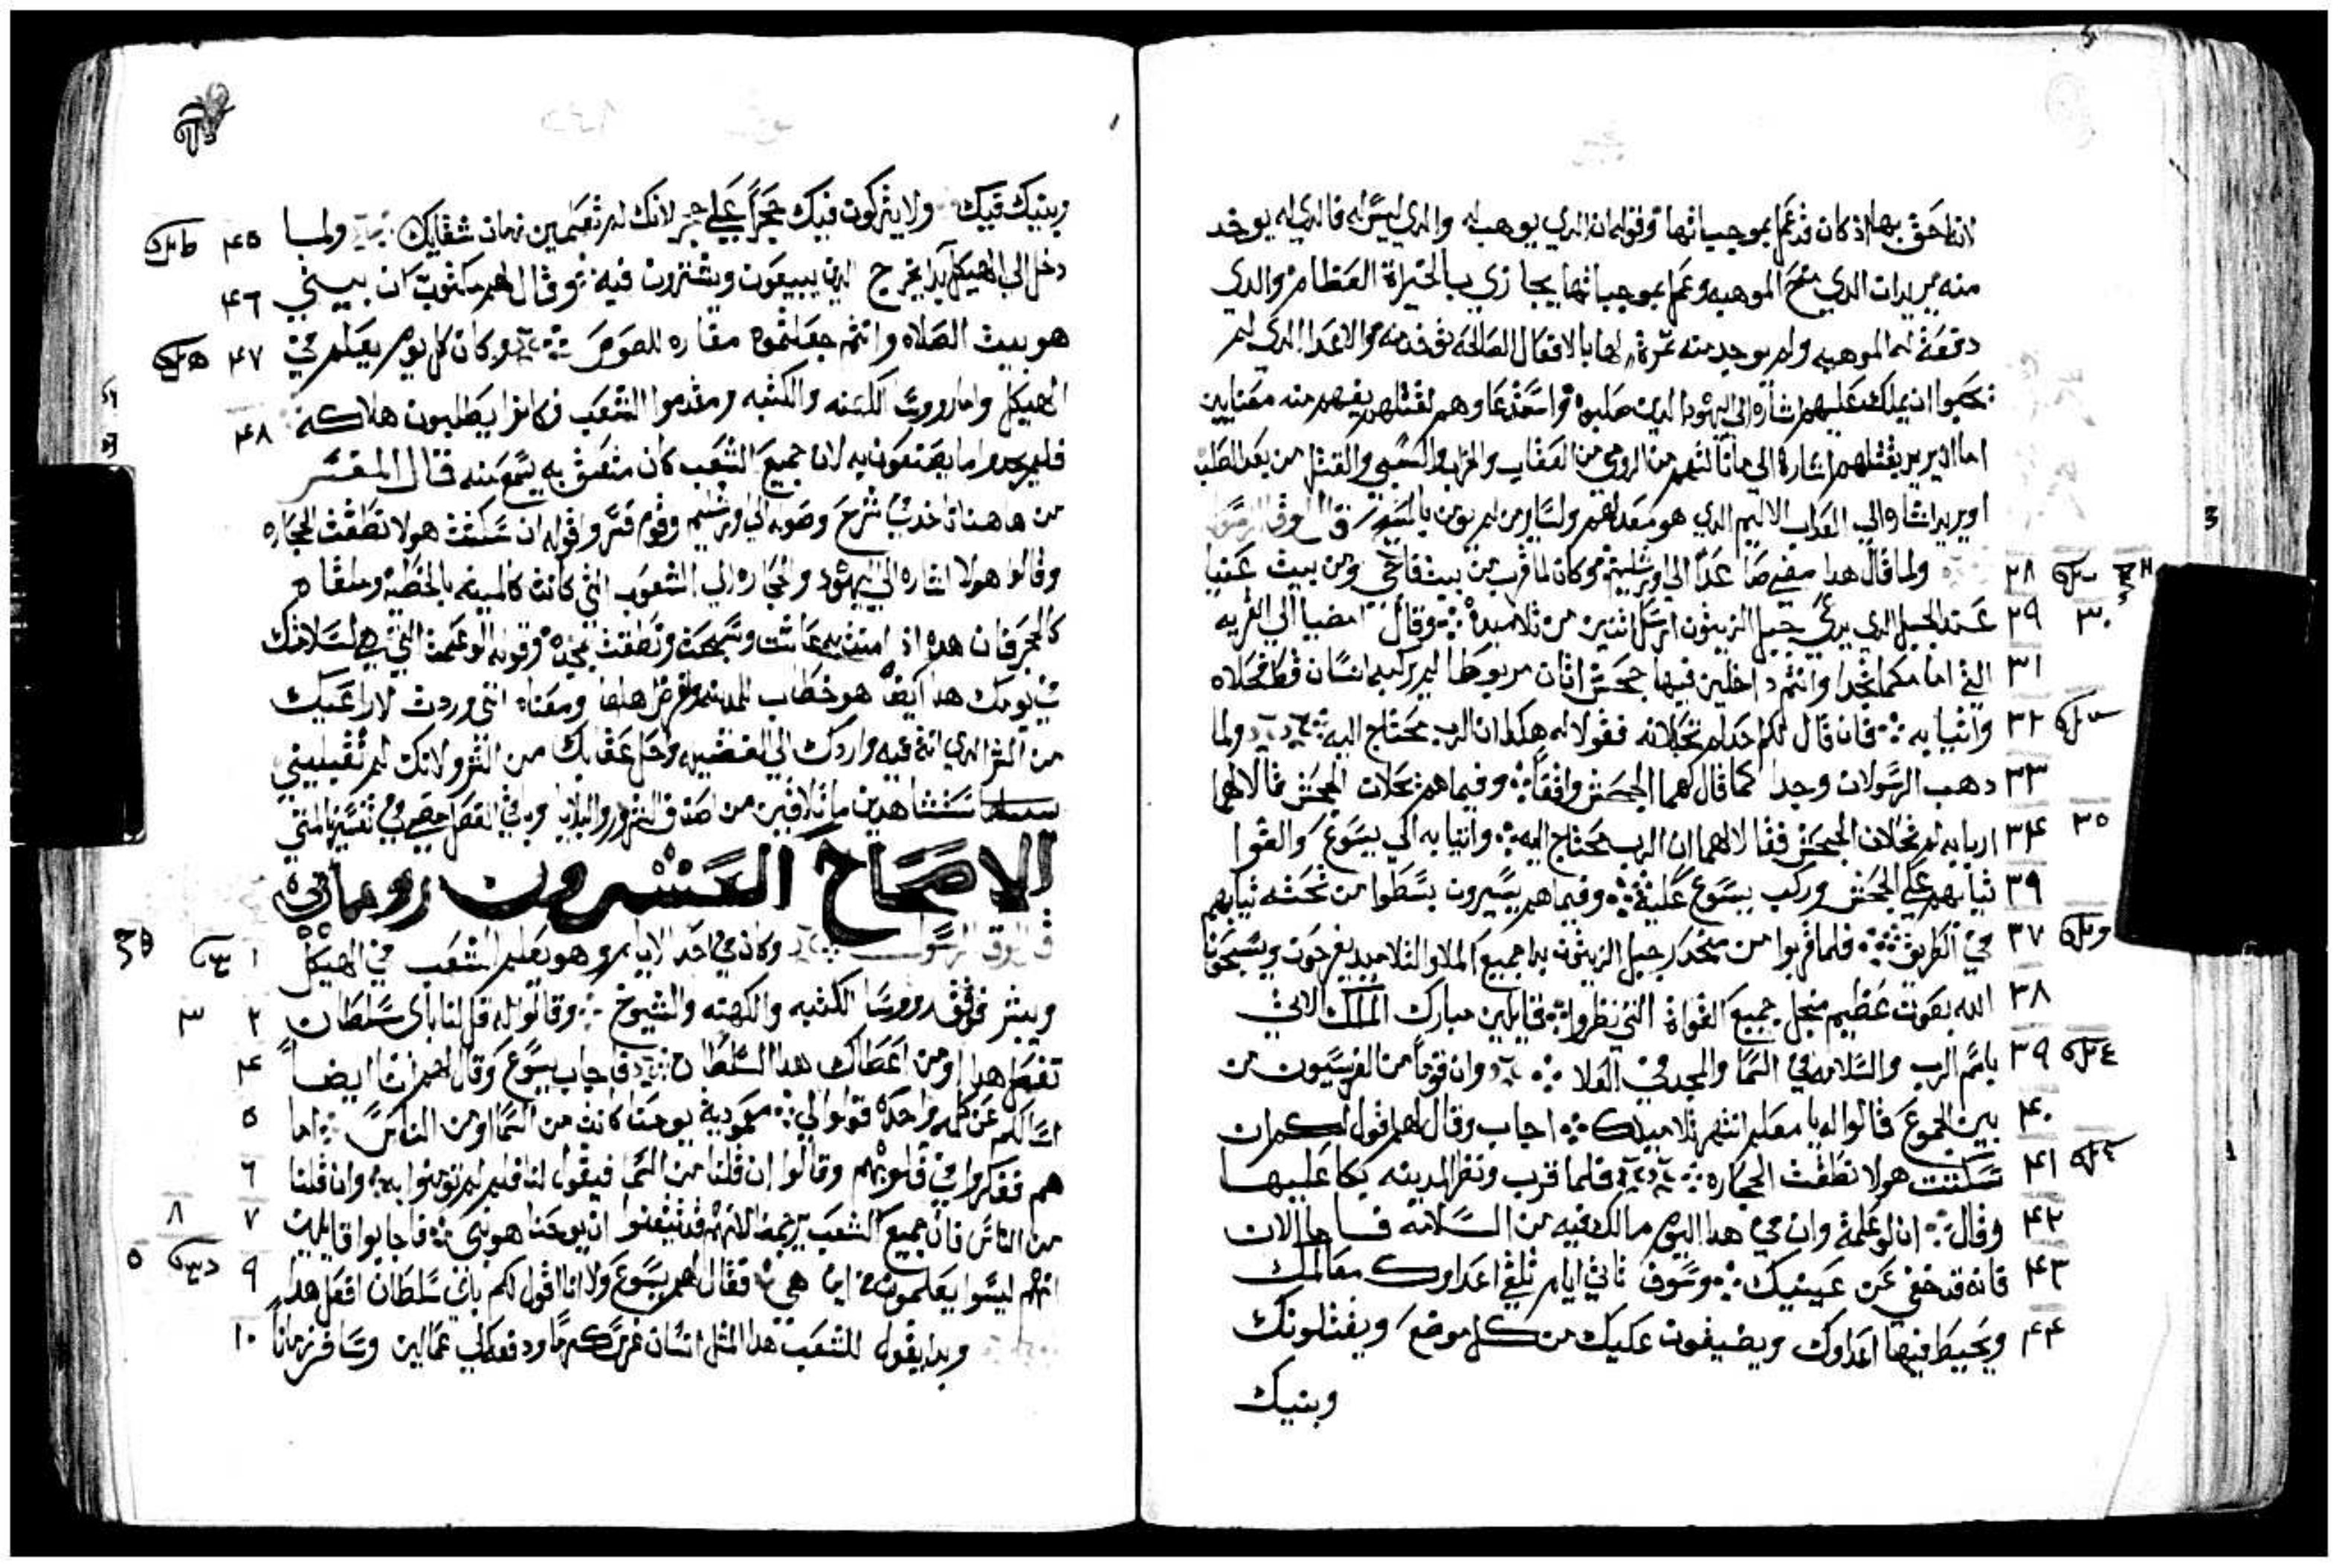 لانه احق بها اذ كان قد عمل بموجباتها وقوله ان الذي يوهب له والدي ليس له فالدي له يوخد
منه يريد ان الدي منح الموهبه وعمل بموجباتها يجازي بالخيراة العظام والدي
دفعة له الموهبه ولم يوجد منه ثمرة لها بالافعال الصالحه توخد منه والاعدا الدي لم
يحبوا ان يملك عليهم اشارة الي اليهود الدين صلبوه واستدعا وهم لقتلهم يفهم منه معنايين
اما انه يريد بقتلهم اشارة الي ما نالتهم من الروم من العقاب والخراب والسبي والقتل من بعد الصلب
او يريد اشاره الي العداب الاليم الدي هو معد لهم ولساير من لم يومن بالسيد قال لوقا الرسول
ولما قال هدا مضي صاعدا الي اورشليم وكان لما قرب من بيت فاجي ومن بيت عنيا ٢٨
عند الجبل الدي يدعي جبل الزيتون ارسل اثنين من تلاميده وقال امضيا الي القريه ٢٩ ٣٠
التي امامكما تجدا وانتم داخلين فيها جحش اتان مربوطا لم يركبه انسان قط فحلاه ٣١
واتيا به فان قال لكم احد لم تحلانه فقولا له هكدا ان الرب محتاج اليه ولما ٣٢
دهب الرسولان وجدا كما قال لهما الجحش واقفا وفيما هم يحلان الجحش قالا لهما ٣٣
اربابه لم تحلان الجحش فقالا لهما ان الرب محتاج اليه واتيا به الي يسوع والقوا ٣٤ ٣٥
ثيابهم علي الجحش وركب يسوع عليه وفيما هم يسيرون بسطوا من تحته ثيابهم ٣٩
في الطريق فلما قربوا من منحدر جبل الزيتون بدا جميع الملا والتلاميد يفرحون ويسبحون ٣٧
الله بصوت عظيم منجل جميع القواة التي نظروا قايلين مبارك الملك الاتي ٣٨
باسم الرب والسلامه في السما والمجد في العلا وان قوما من الفريسيون من ٣٩
بين الجموع قالوا له يا معلم انتهر تلاميدك اجاب وقال لهم اقول لكم ان ٤٠
سكتت هولا نطقت الحجاره فلما قرب ونظر المدينه بكا عليها ٤١
وقال انا لو علمة وان في هدا اليوم مالك فيه من السلامه فاما الان ٤٢
فانه قد خفي عن عينيك وسوف تاتي ايام تلقي اعداوك معالمك ٤٣
ويحيط فيها اعداوك ويضيقون عليك من كل موضع ويقتلونك ٤٤
وبنيك
وبنيك فيك ولا يتركون فيك حجرا علي حجر لانك لم تعلمين زمان شقايك ولما ٤٥
دخل الي الهيكل بدا يخرج الدين يبيعون ويشترون فيه وقال لهم مكتوب ان بيتي ٤٦
هو بيت الصلاه وانتم جعلتموه مغاره للصوص وكان كل يوم يعلم في ٤٧
الهيكل واما رووسا الكهنه والكتبه ومقدموا الشعب فكانوا يطلبون هلاكه ٤٨
فلم يجدوا ما يصنعون به لان جميع الشعب كان متعلق به يسمع منه قال المفسر
من هاهنا ناخد في شرح وصوله الي اورشليم وقوله ان سكتت هولا نطقت الحجاره
وقالوا هولا اشاره الي اليهود والحجاره الي الشعوب التي كانت كالميته بالخطيه وملقاه
كالحجر فان هده اد امنت به عاشت وسبحت ونطقت بمجده وقوله لو علمت التي هي لسلامتك
في يومك هدا ايضا هو خطاب للمدينه والغرض اهلها ومعناه انني وردت لاراعيك
من الشر الدي انة فيه واردك الي الفضيله واحل عقابك من الشر ولانك لم تقبليني
ستشاهدين ما تلاقين من اصناف الشرور والبلايا وباقي الفصل مضي في تفسير المتي
الاصحاح العشرون روماني
قال لوقا الرسول وكان في احد الايام وهو يعلم الشعب في الهيكل ١
ويبشر فوثب روسا الكتبه والكهنه والشيوخ وقالوا له قل لنا باي سلطان ٢ ٣
تفعل هدا او من اعطاك هدا السلطان فاجاب يسوع وقال لهم انا ايضا ٤
اسالكم عن كلمه واحده قولوا لي معمودية يوحنا كانت من السما او من الناس اما ٥
هم ففكروا في قلوبهم وقالوا ان قلنا من السما فيقول لنا فلم لم تومنوا به وان قلنا ٦
من الناس فان جميع الشعب يرجمنا لانهم قد تيقنوا ان يوحنا هو نبي فاجابوا قايلين ٧ ٨
انهم ليسوا يعلمون من اين هي فقال لهم يسوع ولا انا اقول لكم باي سلطان افعل هدا ٩
وبدا يقول للشعب هدا المثل انسان غرس كرما ودفعه الي عمالين وسافر زمانا ١٠